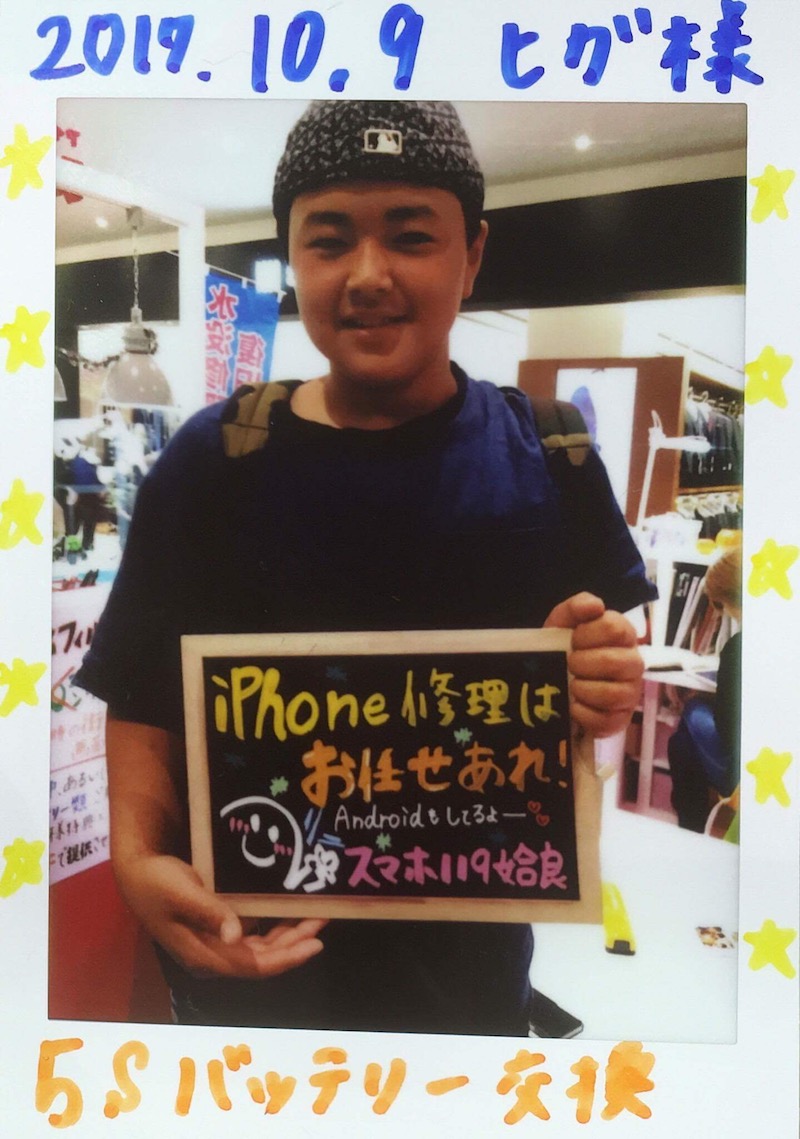 2017.10.9 ヒグ様
水没修
復旧
iPhone修理は
お任せあれ!
Androidもしてるよー
スマホ119姶良
5Sバッテリー交換